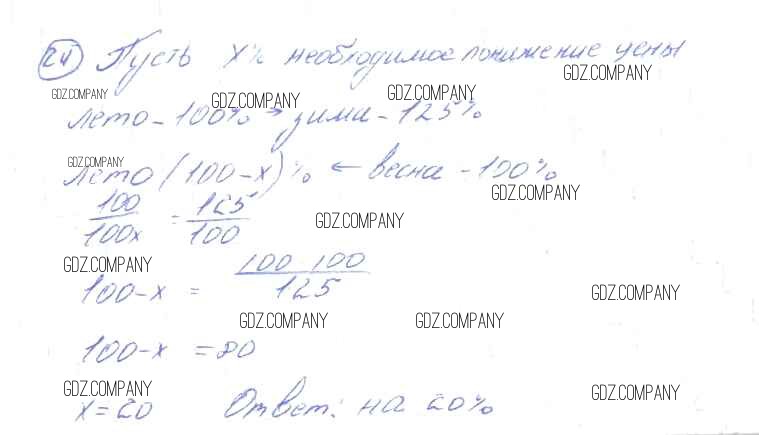 24 Пусть x% необходимое понижение цены
GDZ.COMPANY
GDZ.COMPANY GDZ.COMPANY GDZ.COMPANY
лето - 100% → зима - 125%
GDZ.COMPANY
лето (100-x)% ← весна - 100%
GDZ.COMPANY
100/100x =125/100
GDZ.COMPANY
GDZ.COMPANY
100-x = 100 100/125
GDZ.COMPANY
GDZ.COMPANY GDZ.COMPANY
100-x = 80
GDZ.COMPANY GDZ.COMPANY
x=20 Ответ: на 20%